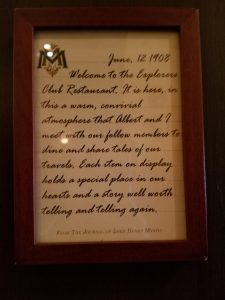 M
June, 12 1908
Welcome to the Explorers
Club Restaurant. It is here, in
this a warm, convivial
atmosphere that Albert and I
meet with our fellow members to
dine and share tales of our
travels. Each item on display
holds a special place in our
hearts and a story well worth
telling and telling again.
From The Journal of Lord Henry Mystic